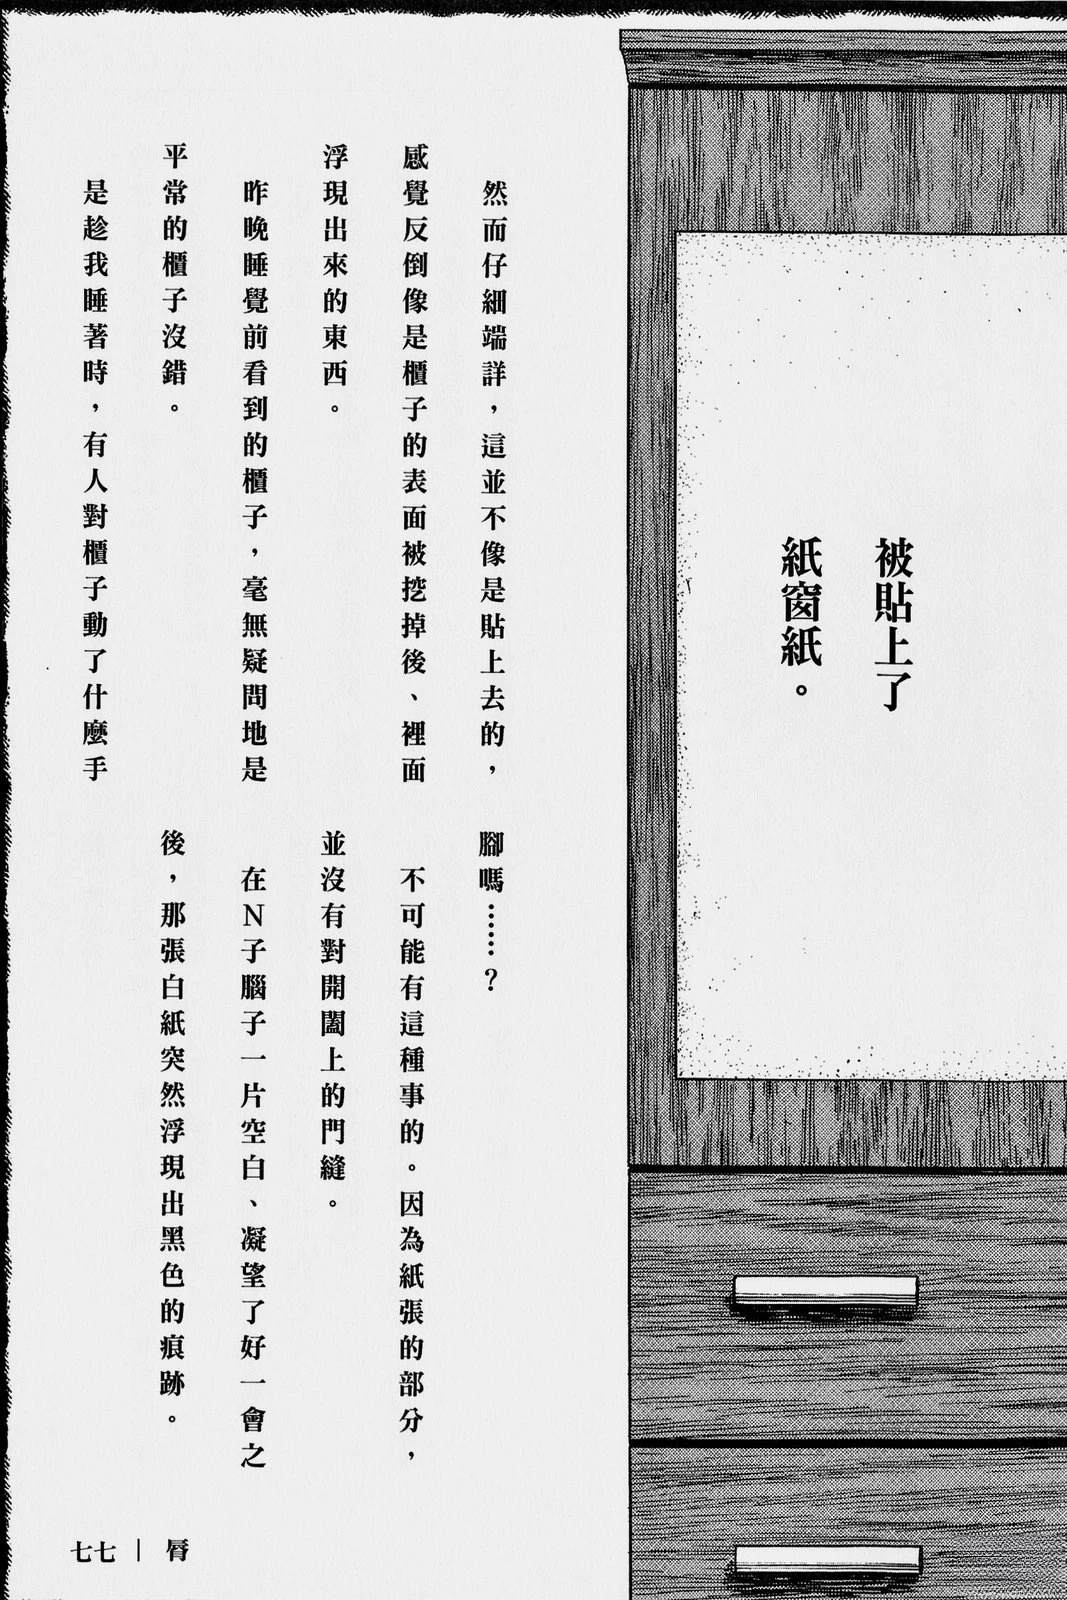 被貼上了
紙窗紙。
然而仔細端詳，這並不像是貼上去的，
感覺反倒像是櫃子的表面被挖掉後、裡面
浮現出來的東西。
昨晚睡覺前看到的櫃子，毫無疑問地是
平常的櫃子沒錯。
是趁我睡著時，有人對櫃子動了什麼手
腳嗎……？
不可能有這種事的。因為紙張的部分，
並沒有對開闔上的門縫。
在Ｎ子腦子一片空白、凝望了好一會之
後，那張白紙突然浮現出黑色的痕跡。
七七｜脣